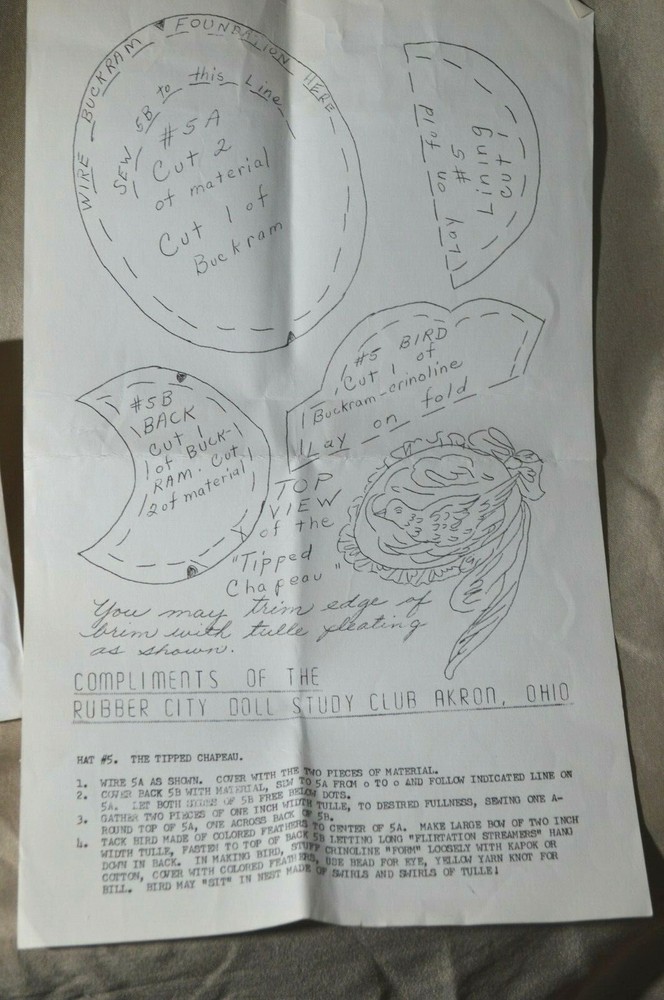 WIRE BUCKRAM FOUNDATION HERE
SEW 5B to this Line
#5A
Cut 2
of material
Cut 1 of
Buckram
Cut 1
Lining
#5
Lay on fold
#5 BIRD
Cut 1 of
Buckram-crinoline
Lay on fold
#5B
BACK
Cut 1
of BUCK-
RAM. Cut
2 of material
TOP
VIEW
of the
"Tipped
Chapeau"
You may trim edge of
brim with tulle pleating
as shown.
COMPLIMENTS OF THE
RUBBER CITY DOLL STUDY CLUB AKRON, OHIO
HAT #5. THE TIPPED CHAPEAU.
1. WIRE 5A AS SHOWN. COVER WITH THE TWO PIECES OF MATERIAL.
2. COVER BACK 5B WITH MATERIAL, SEW TO 5A FROM o TO o AND FOLLOW INDICATED LINE ON
5A. LET BOTH OF 5B FREE BELOW DOTS.
3. GATHER TWO PIECES OF ONE INCH WIDTH TULLE, TO DESIRED FULLNESS, SEWING ONE A-
ROUND TOP OF 5A, ONE ACROSS BACK OF 5B.
4. TACK BIRD MADE OF COLORED FEATHERS TO CENTER OF 5A. MAKE LARGE BOW OF TWO INCH
WIDTH TULLE, FASTEN TO TOP OF BACK 5B LETTING LONG "FLIRTATION STREAMERS" HANG
DOWN IN BACK. IN MAKING BIRD, STUFF CRINOLINE "FORM" LOOSELY WITH KAPOK OR
COTTON, COVER WITH COLORED FEATHERS, USE BEAD FOR EYE, YELLOW YARN KNOT FOR
BILL. BIRD MAY "SIT" IN NEST MADE OF SWIRLS AND SWIRLS OF TULLE!